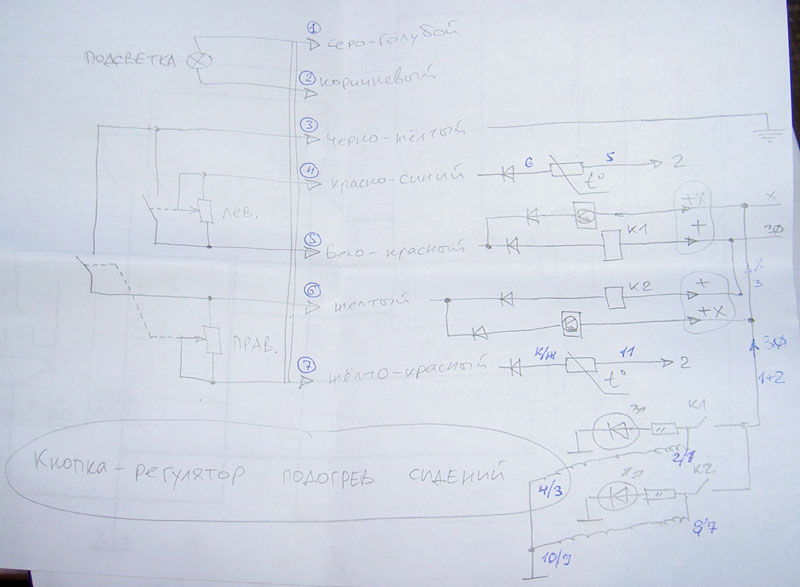 1
серо-голубой
ПОДСВЕТКА
2
коричневый
3
черно-жёлтый
4
красно-синий
6
5
2
t°
+X
X
Лев.
5
бело-красный
К1
+
30
X
3
6
желтый
К2
+
+X
30
ПРАВ.
7
жёлто-красный
К/Ж
11
2
t°
1+2
К1
2/8
Кнопка-регулятор подогрев сидений
4/3
К2
8/7
10/9